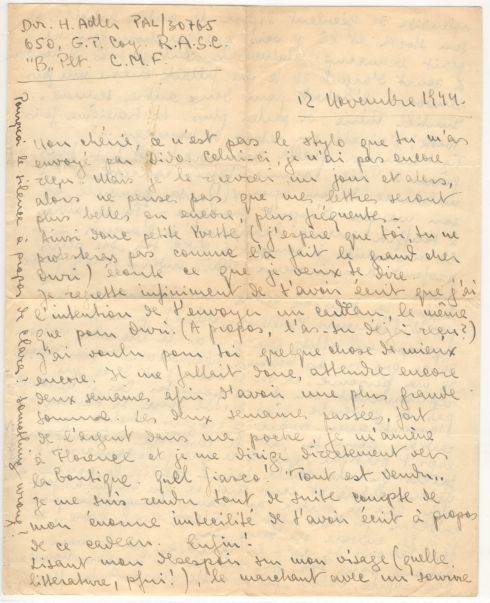 Dvr. H. Adler PAL/30765
650, G.T. Coy. R.A.S.C.
"B" Plt. C.M.F.
12 Novembre 1944.
Mon chérie, ce n'est pas le stylo que tu m'as
envoyé par Dido. Celui-ci, je n'ai pas encore
reçu. Mais je le recevrai un jour et alors,
alors ne penses pas que mes lettres seront
plus belles ou encore, plus fréquentes.-
Ainsi donc petite Yvette (j'espère que toi, tu ne
protesteras pas comme l'a fait le grand cher
Ouri) écoute ce que je veux te dire.
Je regrette infiniment de t'avoir écrit que j'ai
l'intention de t'envoyer un cadeau, le même
que pour Ouri. (A propos, l'as-tu déjà reçu?)
J'ai voulu pour toi quelque chose de mieux
encore. Il me fallait donc, attendre encore
deux semaines afin d'avoir une plus grande
somme. Les deux semaines passées, fort
de l'argent dans ma poche, je m'amène
à Florence et je me dirige directement vers
la Boutique. Quel fiasco! "Tout est vendu"..
Je me suis rendu tout de suite compte de
mon énorme imbecilité de t'avoir écrit à propos
de ce cadeau. Enfin!
Lisant mon désespoir sur mon visage (quelle
litterature, pfui!), le marchant avec un sourire
Pourquoi le silence à propos de Clara? Something wrong?